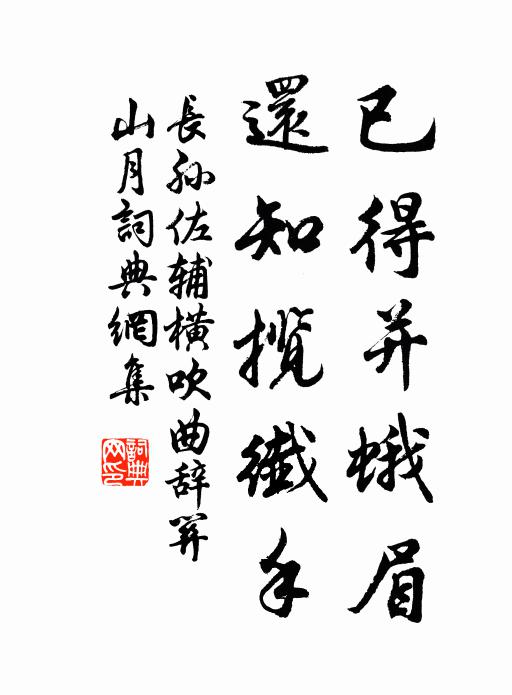 已得并蛾眉
還知揽纖手
長孙佐辅橫吹曲辞關
山月詞典網集
詞典
网印